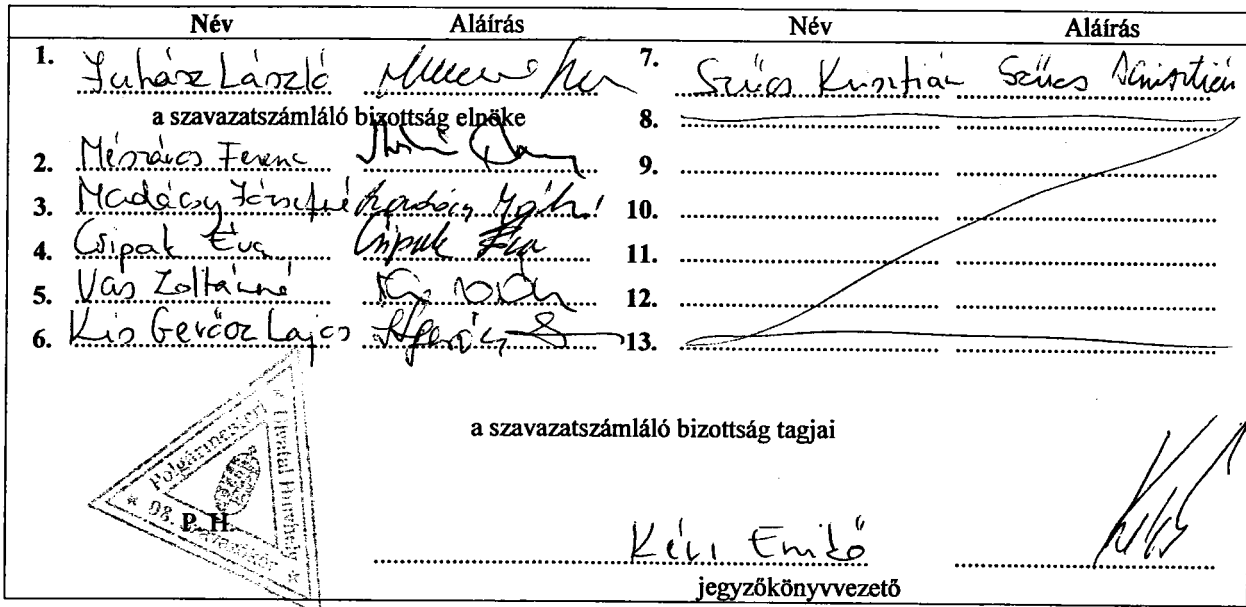 Név Aláírás Név Aláírás
1. Juhász László 7. Szűcs Krisztián Szűcs Krisztián
a szavazatszámláló bizottság elnöke 8.
2. Mészáros Ferenc 9.
3. Madácsy Józsefné 10.
4. Csipak Éva Csipak Éva 11.
5. Vas Zoltánné 12.
6. Kis Gercöz Lajos 13.
a szavazatszámláló bizottság tagjai
Polgármesteri Hivatal
08.
P. H.
Kéri Enikő
jegyzőkönyvvezető